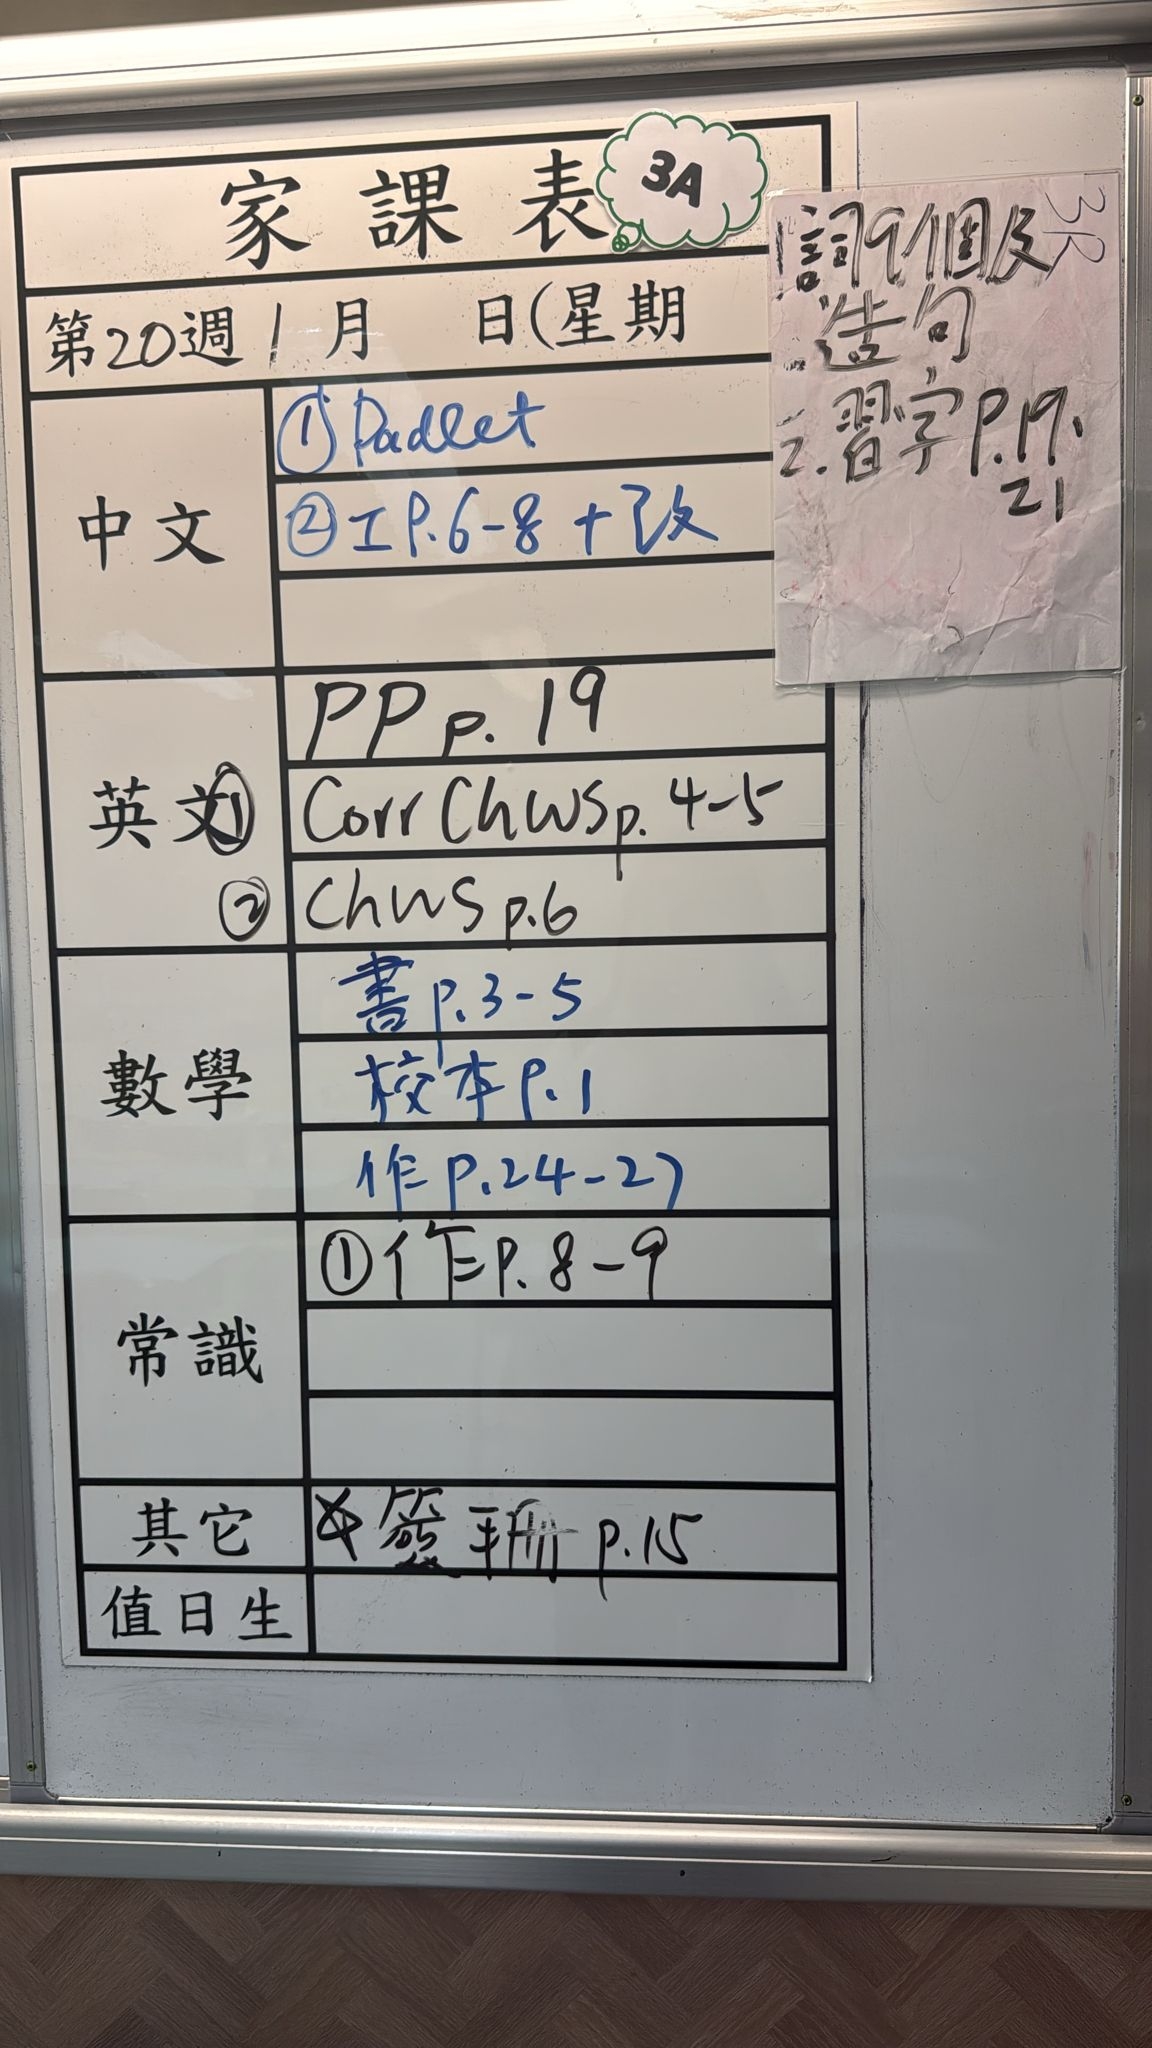 家課表
3A
第20週 1月 日(星期
中文
① Padlet
② 工P.6-8 + 改
英文
PP p. 19
① Corr ChWS p. 4-5
② ChWS p.6
數學
書 p.3-5
校本 P.1
作 p.24-27
常識
① 作 P. 8-9
其它
簽手冊 p.15
值日生
1. 詞9個及
造句
2. 習字 P.19,
21